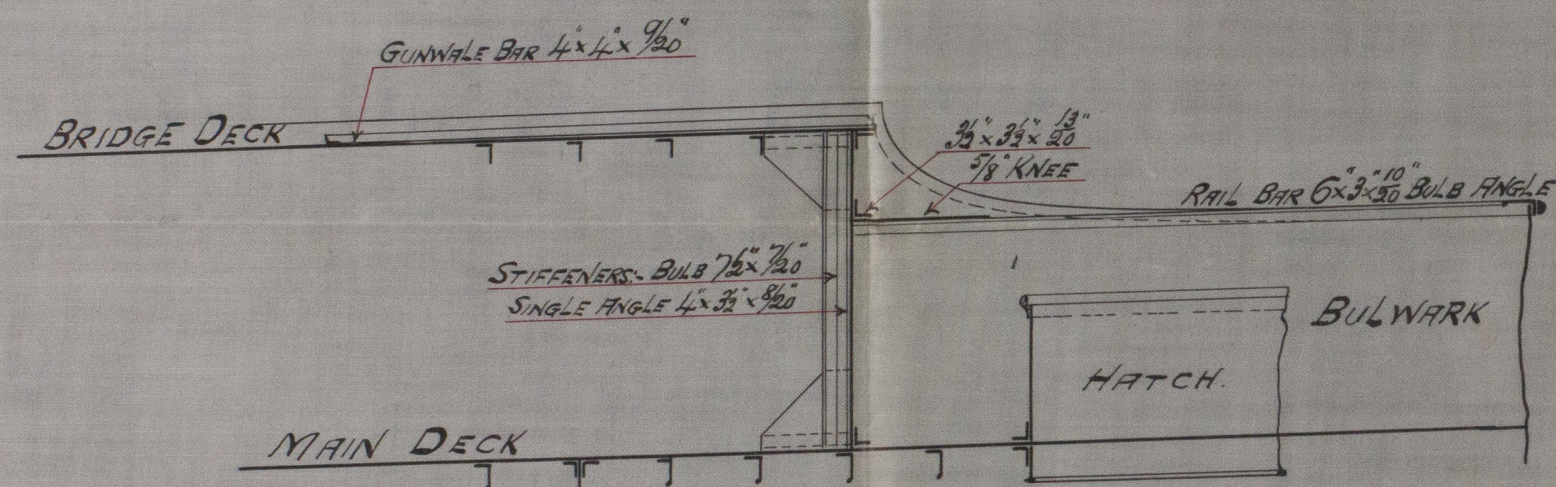 GUNWALE BAR 4"x 4"x 9/20"
BRIDGE DECK
3½"x 3½"x 13/20"
5/8" KNEE
RAIL BAR 6"x 3"x 10/20" BULB ANGLE
STIFFENERS:- BULB 7½"x 7/20"
SINGLE ANGLE 4"x 3½"x 8/20"
BULWARK
HATCH.
MAIN DECK